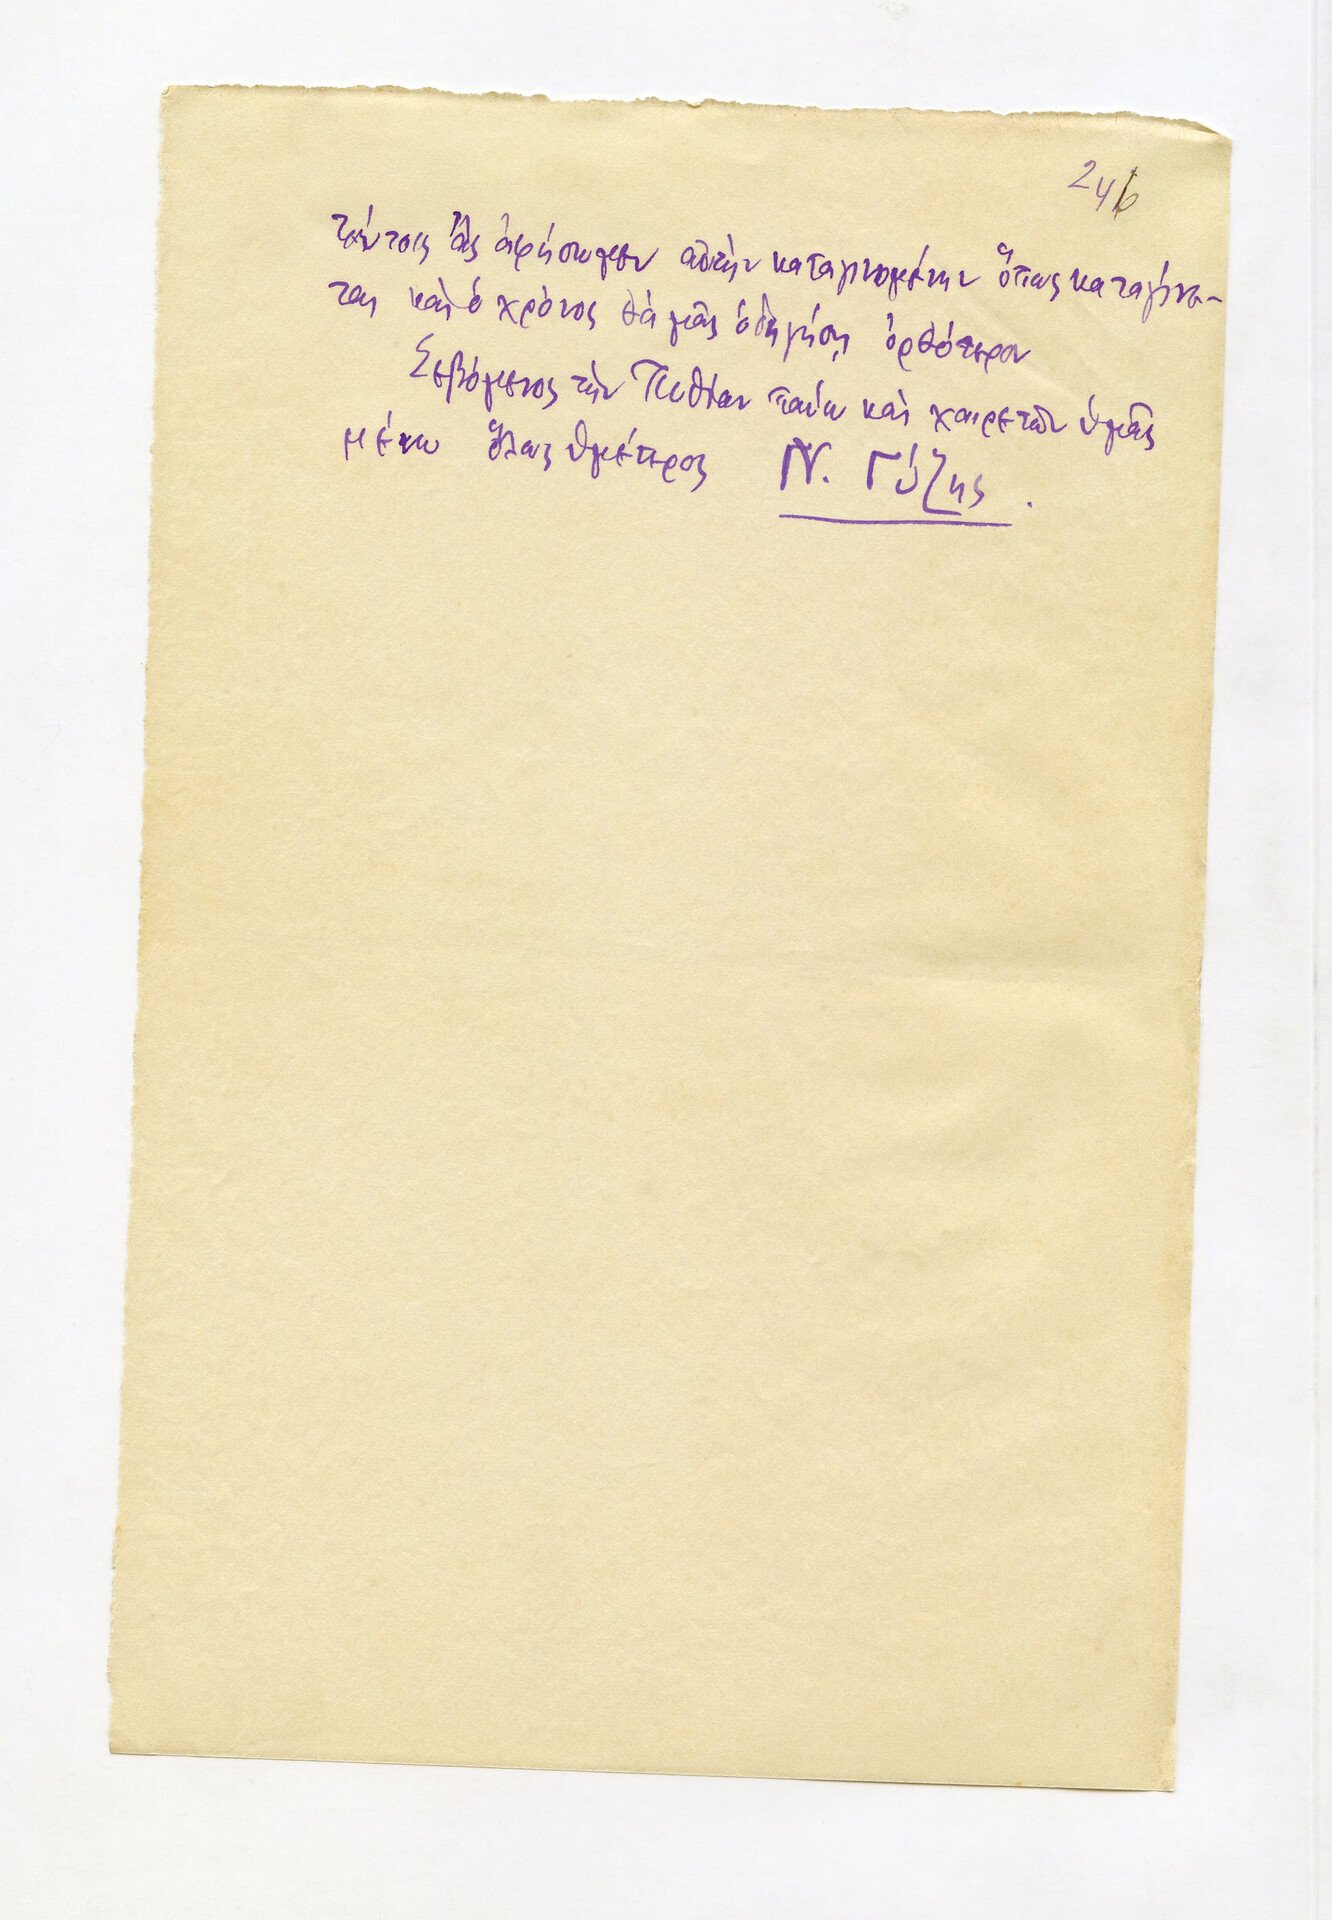 246
τόντσις ἂς ἀφήσωμεν αὐτὴν καταγινομένην ὅπως καταγίνε-
ται καὶ ὁ χρόνος θὰ μᾶς ὁδηγήσῃ ὀρθότερον
Σεβόμενος τὴν Πυθίαν παύω καὶ χαιρετῶν ὑμᾶς
μένω ὅλως ὑμέτερος Ν. Γύζης.